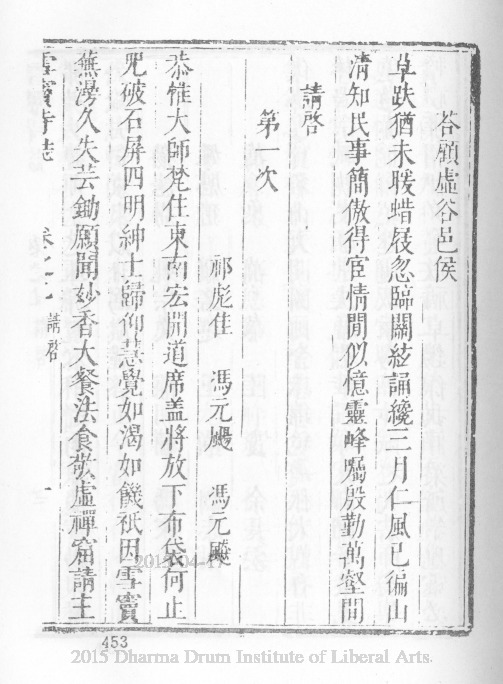 荅顧虛谷邑侯
草趺猶未暖蜡屐忽臨關絃誦纔三月仁風已徧山
清知民事簡傲得宦情閒似憶靈峰囑殷勤萬壑間
請啓
第一次
祁彪佳 馮元颺 馮元飇
恭惟大師梵住東南宏開道席盖將放下布袋何止
咒破石屏四明紳士歸仰慧覺如渴如饑祇因雪竇
蕪漫久失芸鋤願聞妙香大餐法食敬虛禪窟請主
雪竇寺誌 卷之七 請啓 一
2015-04-17
453
2015 Dharma Drum Institute of Liberal Arts.